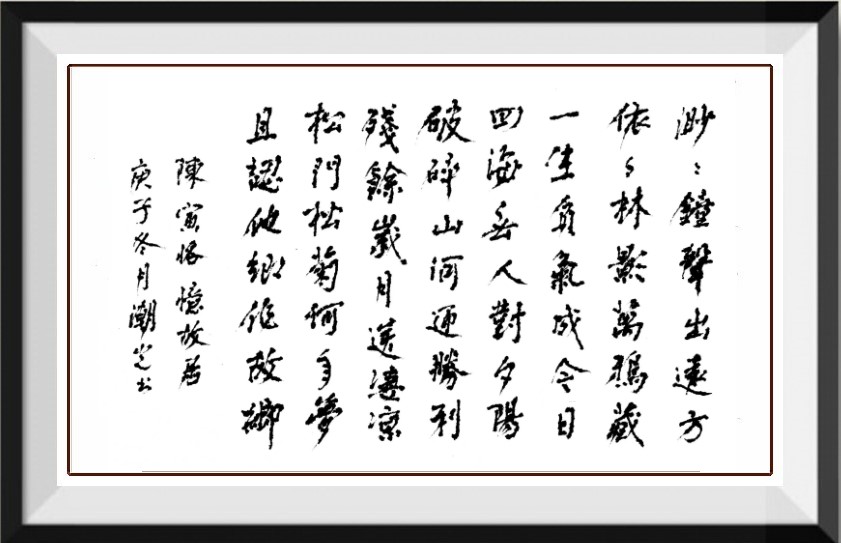 渺〻鐘聲出遠方
依〻林影萬鴉藏
一生負氣成今日
四海無人對夕陽
破碎山河迎勝利
殘餘歲月送淒涼
松門松菊何年夢
且認他鄉作故鄉
陳寅恪憶故居
庚子冬月潮